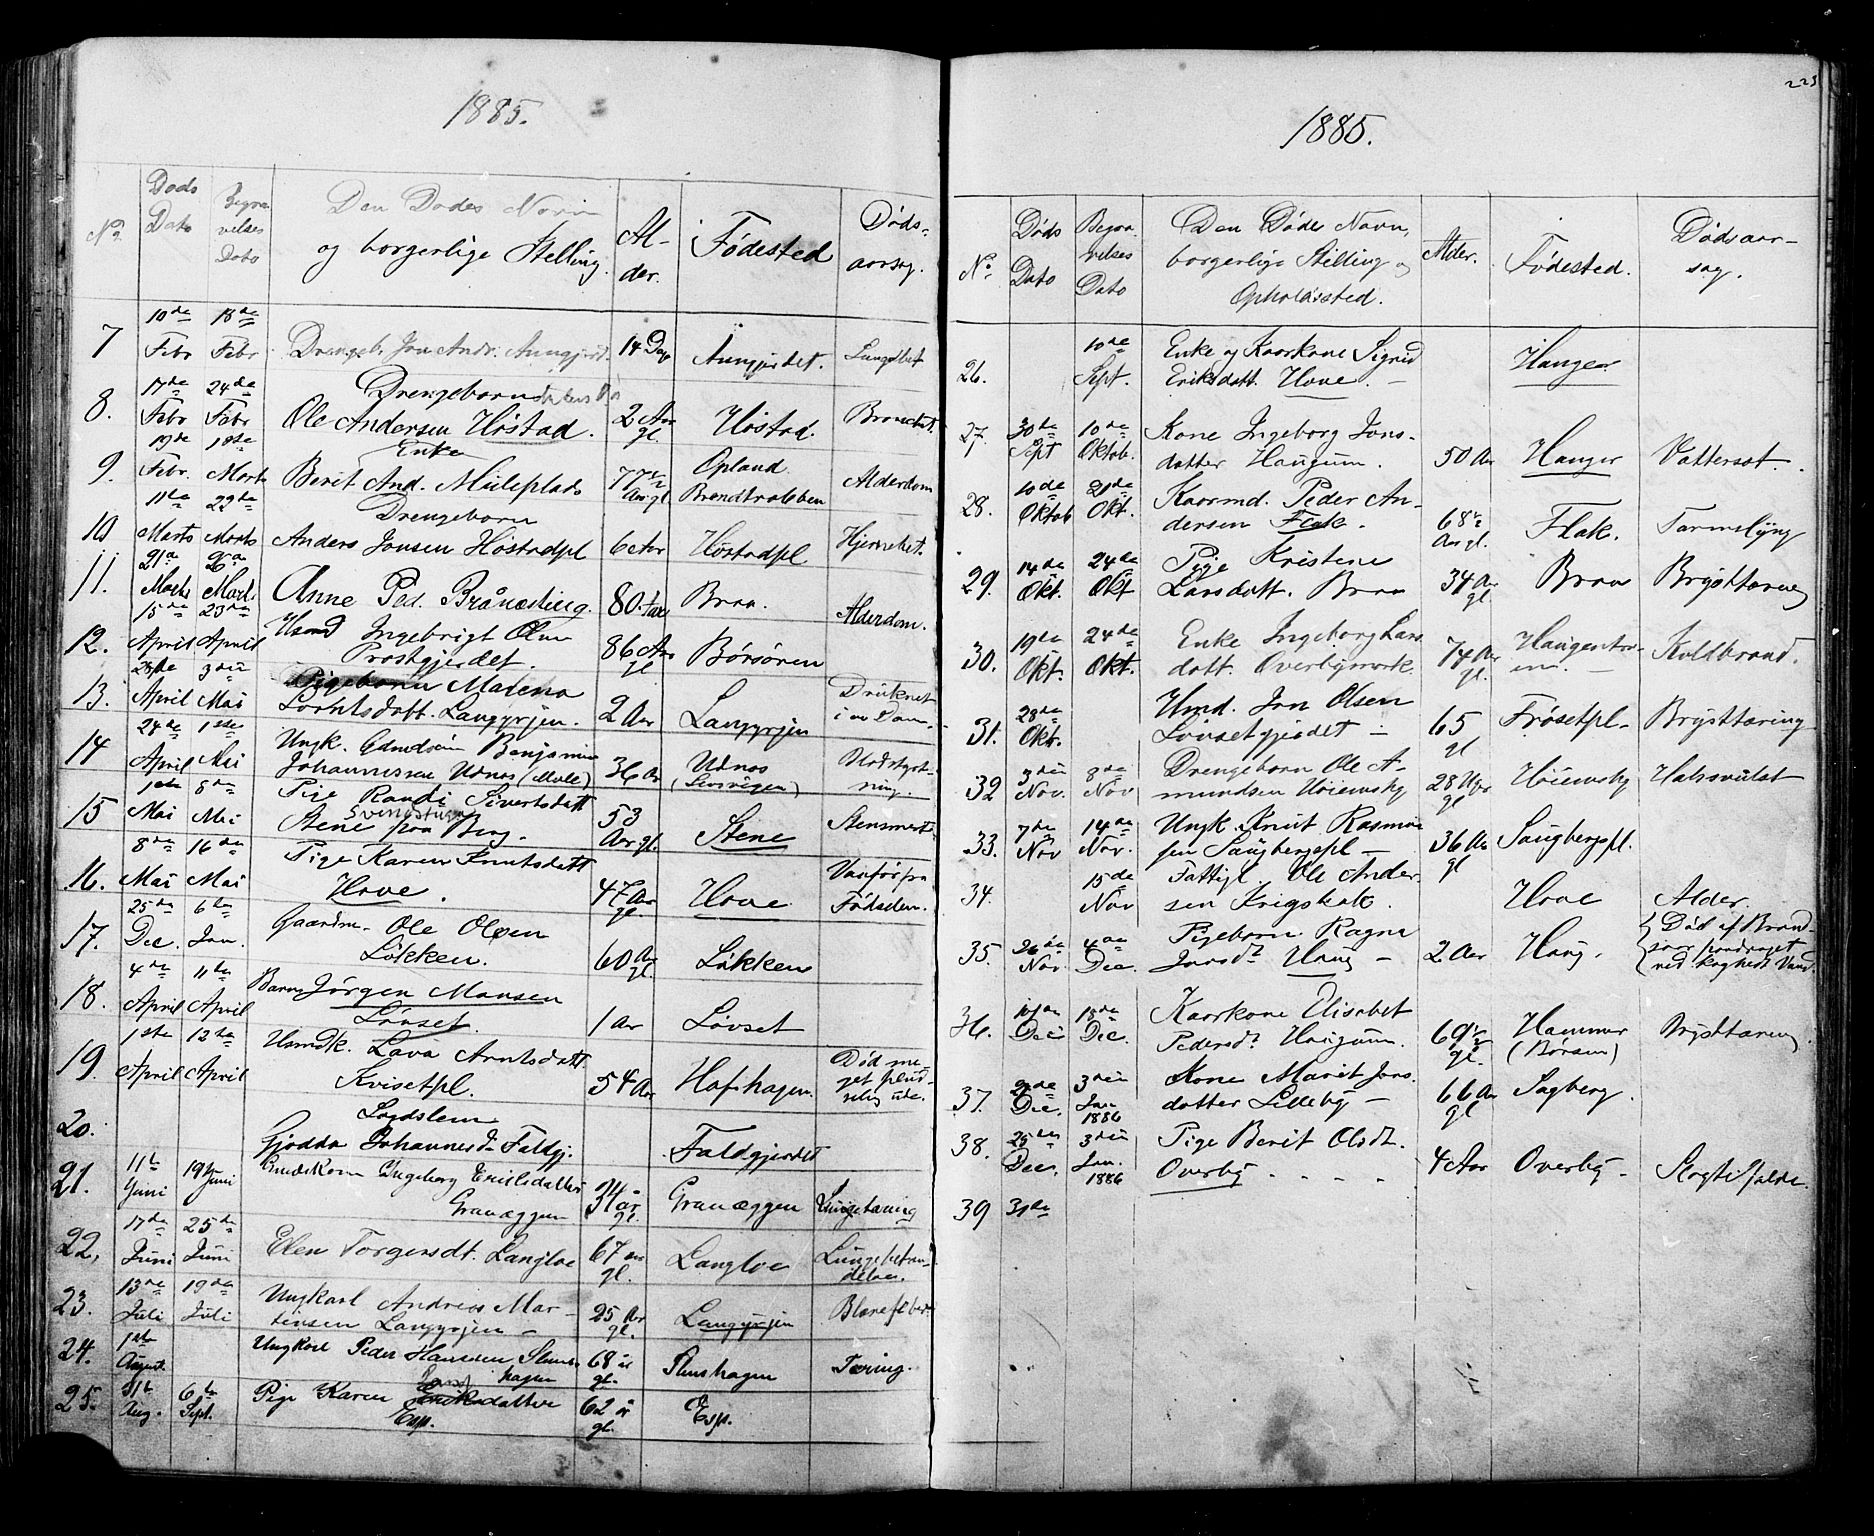 1885.
Døds
Dato
Begra-
velses
Dato
No.
Den Dødes Navn
og borgerlige Stelling.
Al-
der.
Fødested
Døds-
aarsag.
7
10de
Febr
18de
Febr
Drengeb. Jon Andr. Aungjerd.
14 Dage
Aungjerdet.
8.
17de
Febr
24de
Febr
Drengebarn
Ole Andersen Høstad.
2 Aar
gl.
Høstad.
Bronchit.
9.
19de
Febr.
1ste
Marts
Enke
Berit And. Mæleplads
77½
Aar gl.
Opland
Alderdom
10
11te
Marts
22de
Marts
Drengebarn
Anders Jonsen Høstadpl
6 Aar
Høstadpl
11.
21de
Marts
Marts
Anne Ped.
80
Braa.
Alderdom.
12.
15de
April
23de
April
Husmd Ingebrigt Olsen
Prestgjerdet.
86 Aar
gl
Børsøren
13.
April
3die
Mai
Pigebarn Malena
Larntsdatt. Langyrjen.
2 Aar
Langyrjen
Druknet
i en Dam.
14
24de
April
1ste
Mai
Ungk. Benjamin
Johannessen Udnos
36 Aar
Udnos
15
1ste
Mai
8de
Mai
Pige Randi Sivertsdatt
Stene paa Berg.
53
Aar gl.
Stene
16.
8de
Mai
16de
Mai
Pige Karen Arntsdatt
Hove.
47 Aar
gl.
Hove
Vanfør fra
Fødselen.
17.
25de
Dec.
6te
Jan.
Gaardm. Ole Olsen
Løkken.
60 Aar
gl.
Løkken
18.
4de
April
11te
April
Barn Jørgen Monsen
Løvset.
1 Aar
Løvset
19.
1ste
April
12te
April
Husmdk. Lava Arntsdatt
Kvisetpl.
54 Aar
Hafshagen
Død me-
get plud-
selig
20.
Lægdslem
Gjødda Johannesd. Faldgj.
Faldgjerdet
21.
11te
Juni
19 Juni
Ingeborg Eriksdatter
Granæggen
34 år
gl.
Granæggen
Lungetæring
22,
17de
Juni
25de
Juni
Elen Torgersdt. Langloe
67 aar
gl.
Langloe
Lungebetæn-
delse.
23.
13de
Juli
19de
Juli
Ungkarl Andreas Mar-
tinsen Langyrjen
25 Aar
gl.
Langyrjen
24.
1ste
August.
Ungkarl Peder Hansen Stens-
hagen
68 år
gl.
Stenshagen
Tæring.
25.
31te
Aug.
6te
Sept.
Pige Karen datter
Esp.
62 år
gl.
Esp.
223
1885.
No.
Døds
Dato
Begra-
velses
Dato
Den Dødes Navn,
borgerlige Stilling og
Opholdssted.
Alder.
Fødested.
Dødsaar-
sag.
26.
10de
Sept.
Enke og Kaarkone Sigrid
Eriksdatt. Hove. –
Hanger
27.
30te
Sept
10de
Oktob.
Kone Ingeborg Jons-
datter Haugum.
50 Aar
Hanger
Vattersot.
28.
10de
Oktob
20de
Okt.
Kaarmd. Peder An-
dersen Flak.
68½
Aar gl.
Flak.
Tarmslyng
29.
14de
Okt.
24de
Okt
Pige Kristine
Larsdatt. Braa
34 Aar
gl.
Braa
Brysttæring
30.
19de
Okt.
24de
Okt.
Enke Ingeborg Lars
datt. Overbymark
74 Aar
gl.
Koldbrand.
31.
28de
Okt.
Hmd. Jon Olsen
Løvsetgjerdet –
65
gl
Frøsetpl–
Brysttæring
32
3die
Nov.
8de
Nov
Drengebarn Ole A-
mundsen Høiemsby
28 Uger
gl
Høiemsby
33.
7de
Nov
14de
Nov.
Ungk. Knut Rasmus-
sen Saugbergspl –
36 Aar
gl
Saugbergspl.
34.
15de
Nov
Fattigl. Ole Ander-
sen Krigshak.
Hove
Alder.
35.
26de
Nov.
4de
Dec.
Pigebarn Ragna
Jonsdt. Haug –
2 Aar
Haug.
Død af Brand-
saar paadraget
ved koghedt Vand.
36.
Dec
18de
Dec.
Kaarkone Elisabet
Pedersdt. Haugum.
69½
gl.
Hammer
(Børsen)
Brysttæring
37.
Dec.
3die
Jan.
1886
Kone Marit Jons-
datter Lilleby –
66 Aar
gl.
Sagberg.
38.
25de
Dec.
3die
Jan.
1886
Pige Berit Olsdt.
Overby
4 Aar
Overby –
39
31te